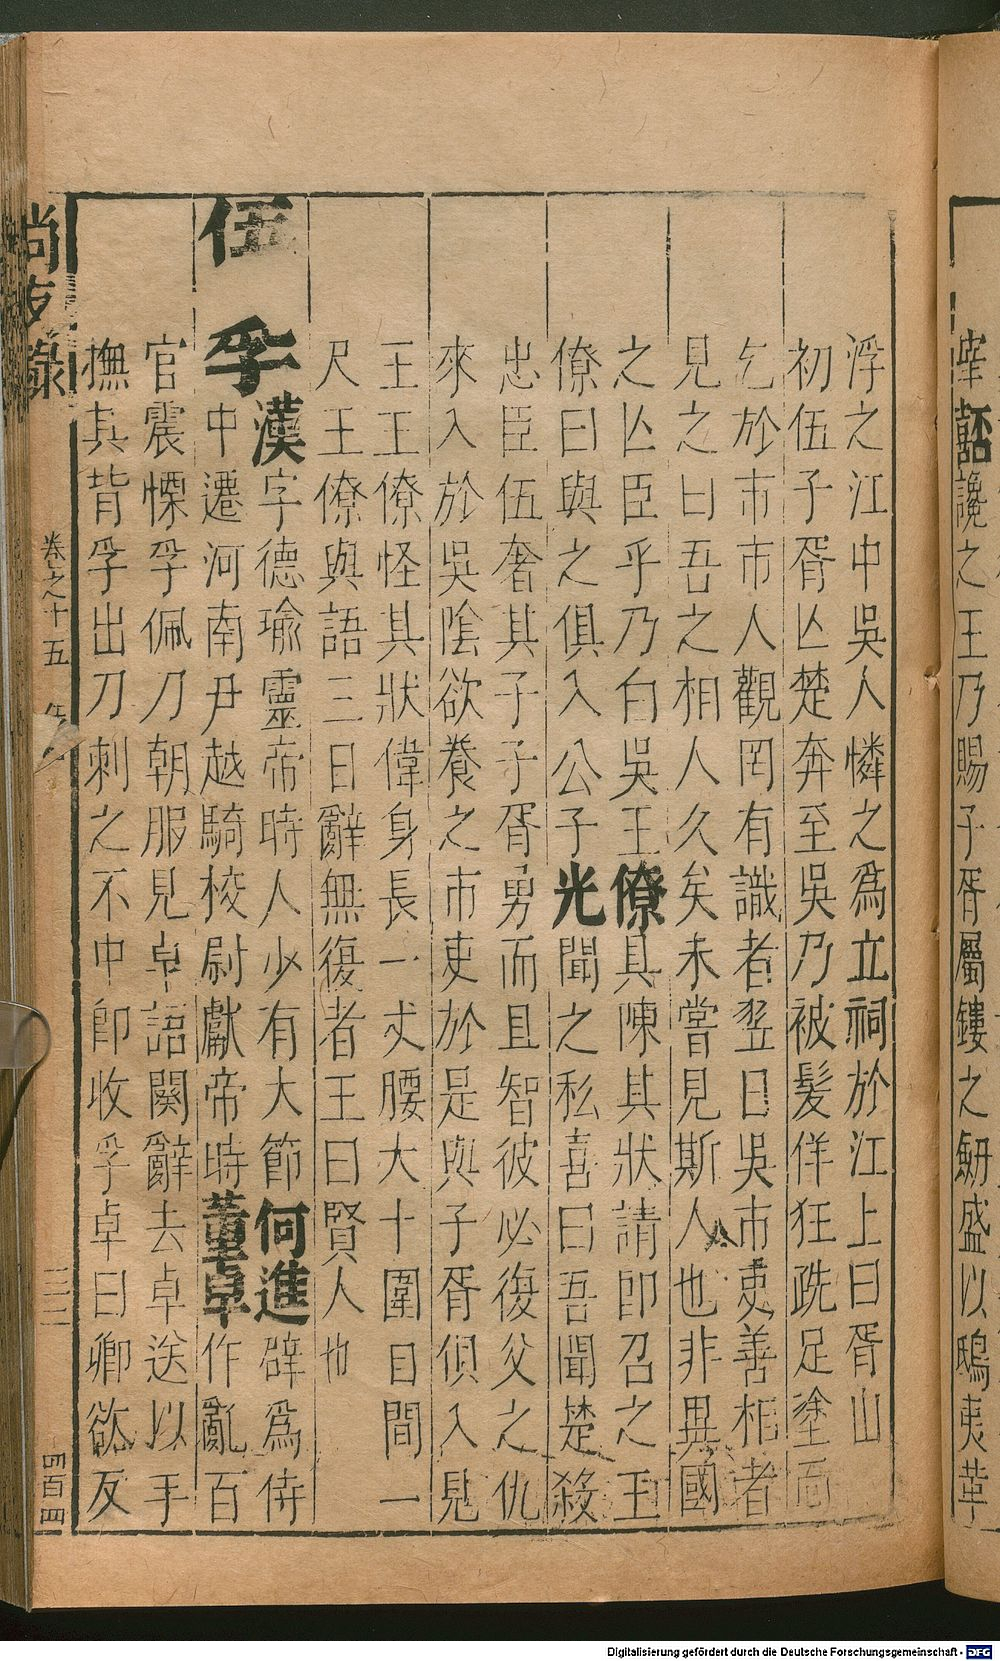 宰嚭讒之王乃賜子胥屬鏤之劍盛以鴟夷革
浮之江中吳人憐之爲立祠於江上曰胥山
初伍子胥亾楚奔至吳乃被髮佯狂跣足塗面
乞於市市人觀罔有識者翌日吳市吏善相者
見之曰吾之相人久矣未嘗見斯人也非異國
之亾臣乎乃白吳王僚具陳其狀請即召之王
僚曰與之俱入公子光聞之私喜曰吾聞楚殺
忠臣伍奢其子子胥勇而且智彼必復父之仇
來入於吳陰欲養之市吏於是與子胥俱入見
王王僚怪其狀偉身長一丈腰大十圍目間一
尺王僚與語三日辭無復者王曰賢人也
伍孚
漢字德瑜靈帝時人少有大節何進辟爲侍
中遷河南尹越騎校尉獻帝時董卓作亂百
官震慄孚佩刀朝服見卓語闋辭去卓送以手
撫其背孚出刀刺之不中即收孚卓曰卿欲反
尚友錄
卷之十五
三二
四百四
Digitalisierung gefördert durch die Deutsche Forschungsgemeinschaft - DFG